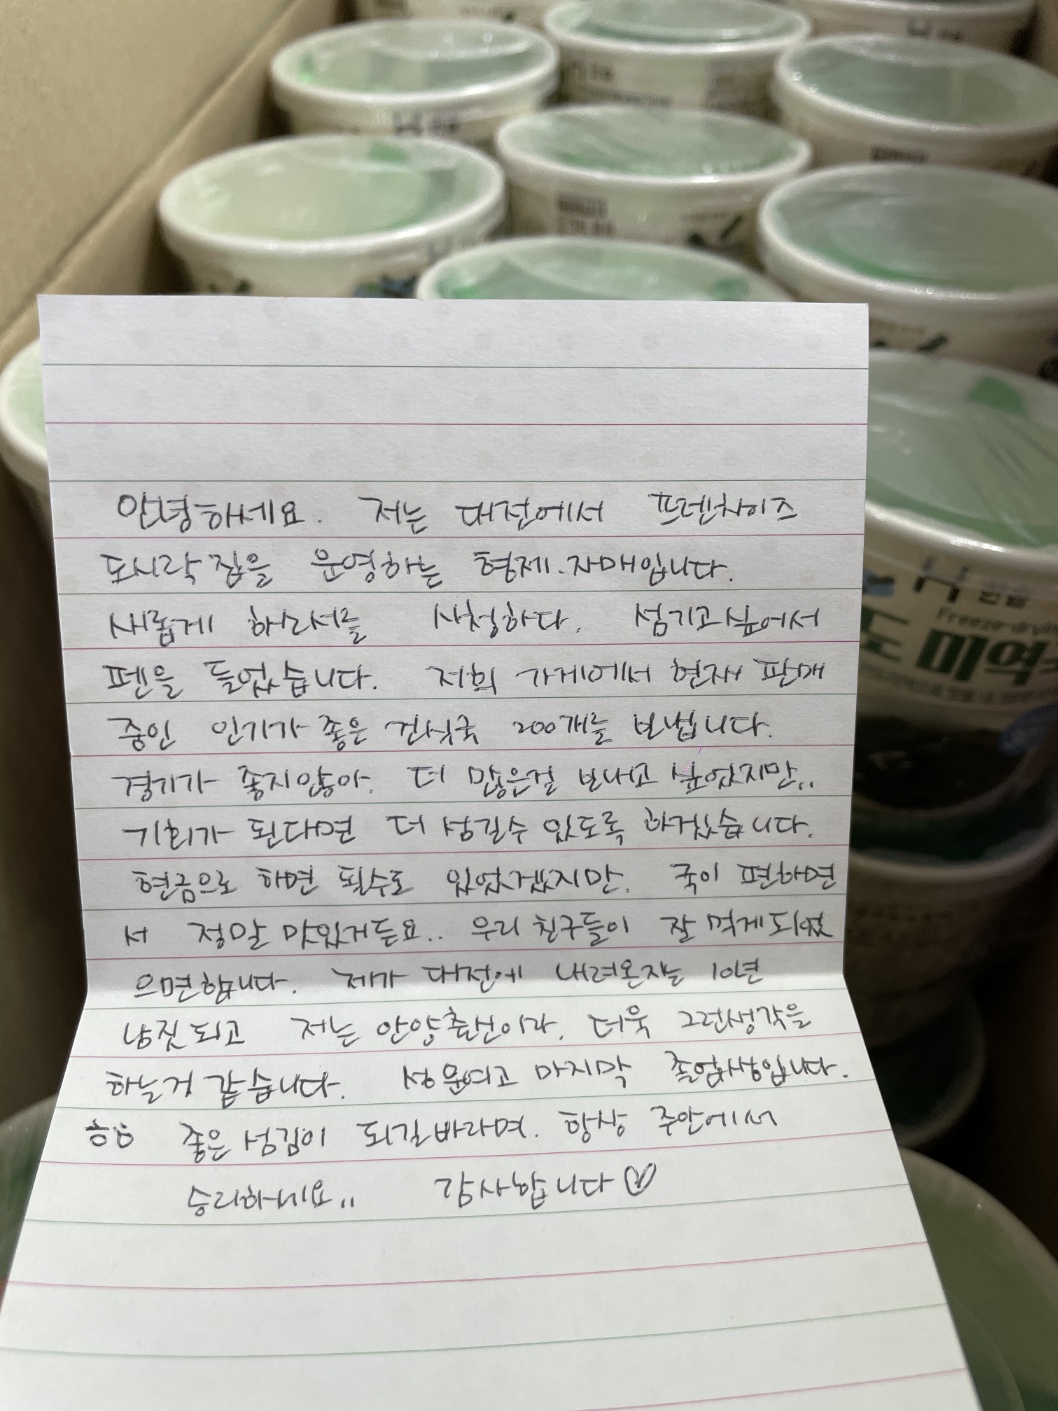 한솔
Freeze-drying
도 미역국
안녕하세요. 저는 대전에서 프렌차이즈
도시락집을 운영하는 형제.자매입니다.
새롭게 하소서를 시청하다. 섬기고싶어서
펜을 들었습니다. 저희 가게에서 현재 판매
중인 인기가 좋은 건식국 200개를 보냅니다.
경기가 좋지않아. 더 많은걸 보내고 싶었지만..
기회가 된다면 더 섬길수 있도록 하겠습니다.
현금으로 하면 될수도 있었겠지만. 국이 편하면
서 정말 맛있거든요.. 우리 친구들이 잘 먹게되었
으면합니다. 제가 대전에 내려온지는 10년
남짓 되고 저는 안양출신이라. 더욱 그런생각을
하는것 같습니다. 성문여고 마지막 졸업생입니다.
ㅎㅎ 좋은 섬김이 되길바라며. 항상 주안에서
승리하세요!! 감사합니다♡